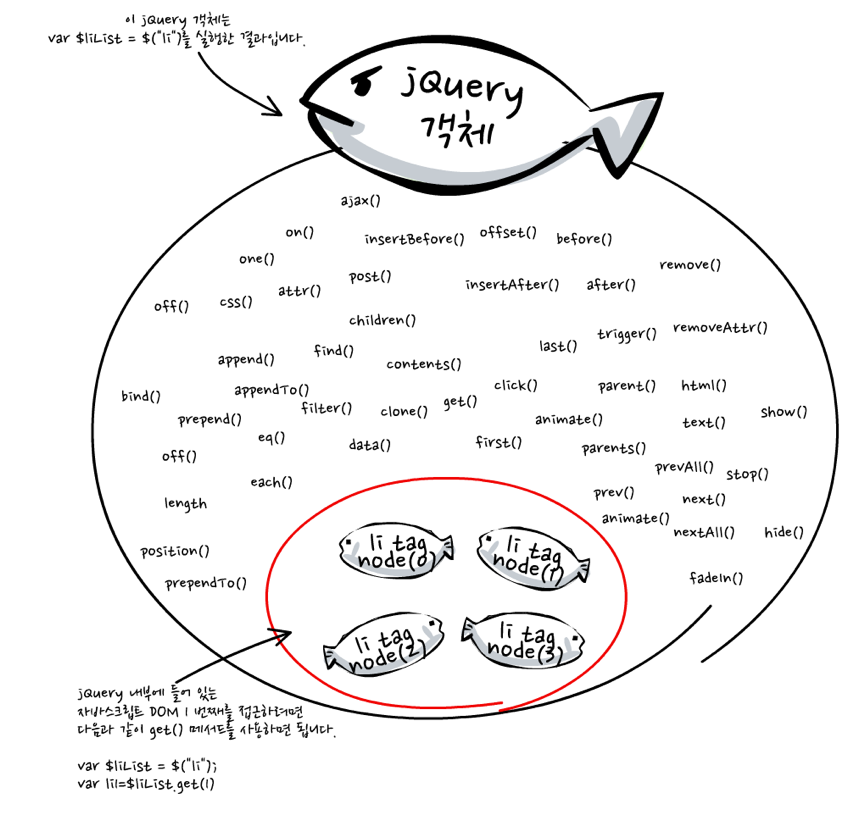 이 jQuery 객체는
var $liList = $("li")를 실행한 결과입니다.
jQuery
객체
ajax()
on()
insertBefore()
offset()
before()
one()
remove()
post()
off()
css()
attr()
insertAfter()
after()
children()
trigger()
removeAttr()
append()
find()
contents()
last()
bind()
appendTo()
click()
parent()
html()
prepend()
filter()
clone()
get()
animate()
text()
show()
off()
eq()
data()
first()
parents()
each()
prevAll()
stop()
length
prev()
next()
animate()
nextAll()
hide()
position()
prependTo()
fadeIn()
li tag
node(0)
li tag
node(1)
li tag
node(2)
li tag
node(3)
jQuery 내부에 들어 있는
자바스크립트 DOM 1 번째를 접근하려면
다음과 같이 get() 메서드를 사용하면 됩니다.
var $liList = $("li");
var li1=$liList.get(1)